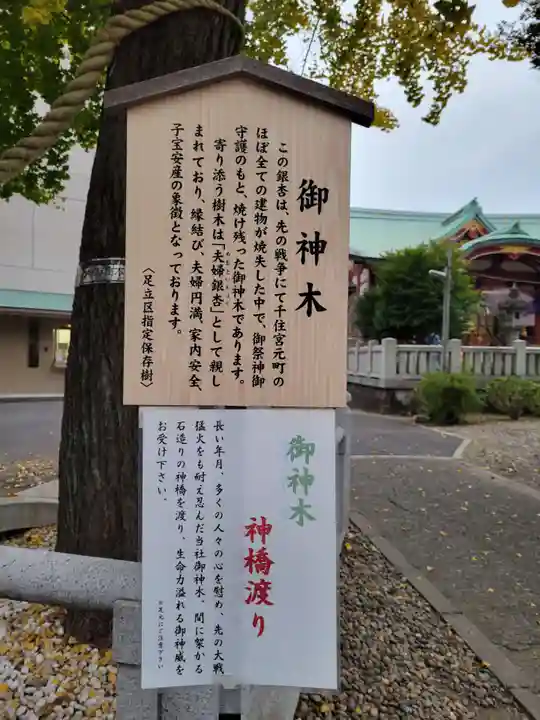 御神木
この銀杏は、先の戦争にて千住宮元町の
ほぼ全ての建物が焼失した中で、御祭神御
守護のもと、焼け残った御神木であります。
寄り添う樹木は「夫婦銀杏」として親し
まれており、縁結び、夫婦円満、家内安全、
子宝安産の象徴となっております。
〈足立区指定保存樹〉
御神木
神橋渡り
長い年月、多くの人々の心を慰め、先の大戦
猛火をも耐え忍んだ当社御神木、間に架かる
石造りの神橋を渡り、生命力溢れる御神威を
お受け下さい。
※足元にご注意下さい